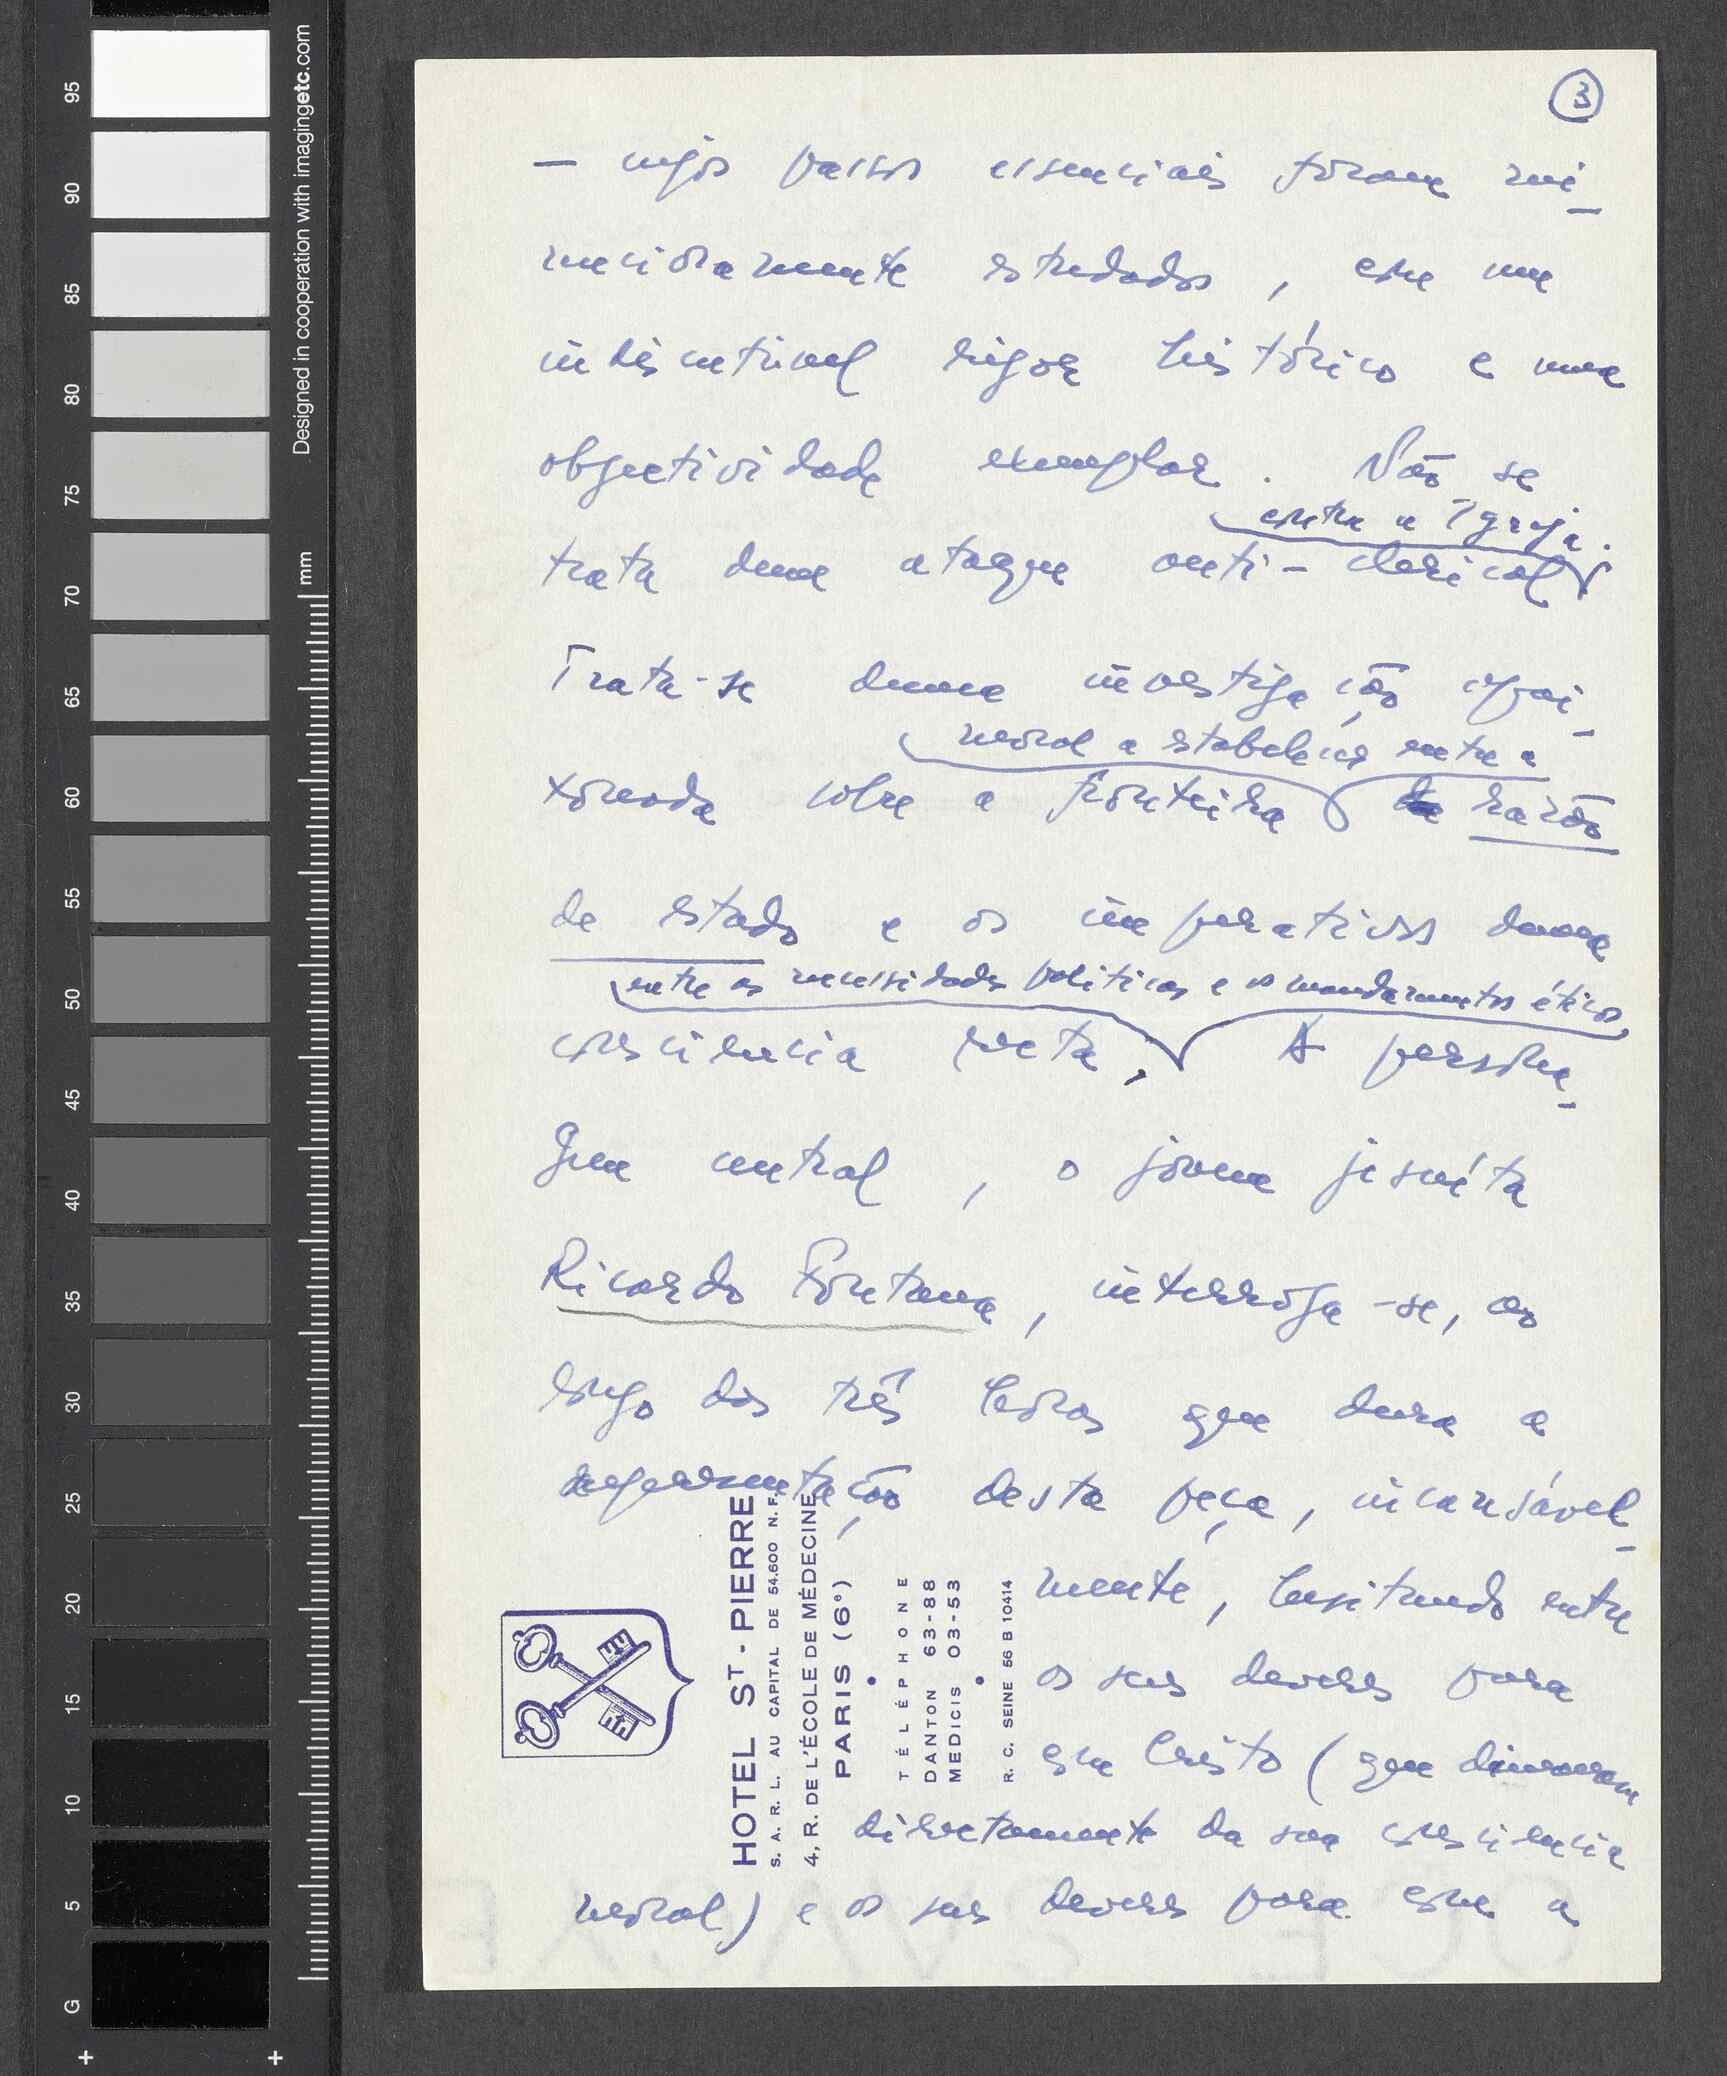 3
— cujos passos essenciais foram mi-
nuciosamente estudados, com um
indiscutível rigor histórico e uma
objectividade exemplar. Não se
contra a Igreja.
trata dum ataque anti-clerical
Trata-se duma investigação apai-
moral a estabelecer entre a
xonada sobre a fronteira razão
de estado e os imperativos duma
entre as necessidades políticas e os mandamentos éticos
consciência recta. A persona-
gem central, o jovem jesuíta
Ricardo Fontana, interroga-se, ao
longo das três horas que dura a
representação desta peça, incansável-
mente, hesitando entre
os seus deveres para
com Cristo (que dimanam
directamente da sua consciência
moral) e os seus deveres para com a
HOTEL ST-PIERRE
S. A. R. L. AU CAPITAL DE 54.600 N. F.
4, R. DE L'ÉCOLE DE MÉDECINE
PARIS (6e)
TÉLÉPHONE
DANTON 63-88
MEDICIS 03-53
R. C. SEINE 56 B 10414
Designed in cooperation with imagingetc.com
mm
95
90
85
80
75
70
65
60
55
50
45
40
35
30
25
20
15
10
5
G